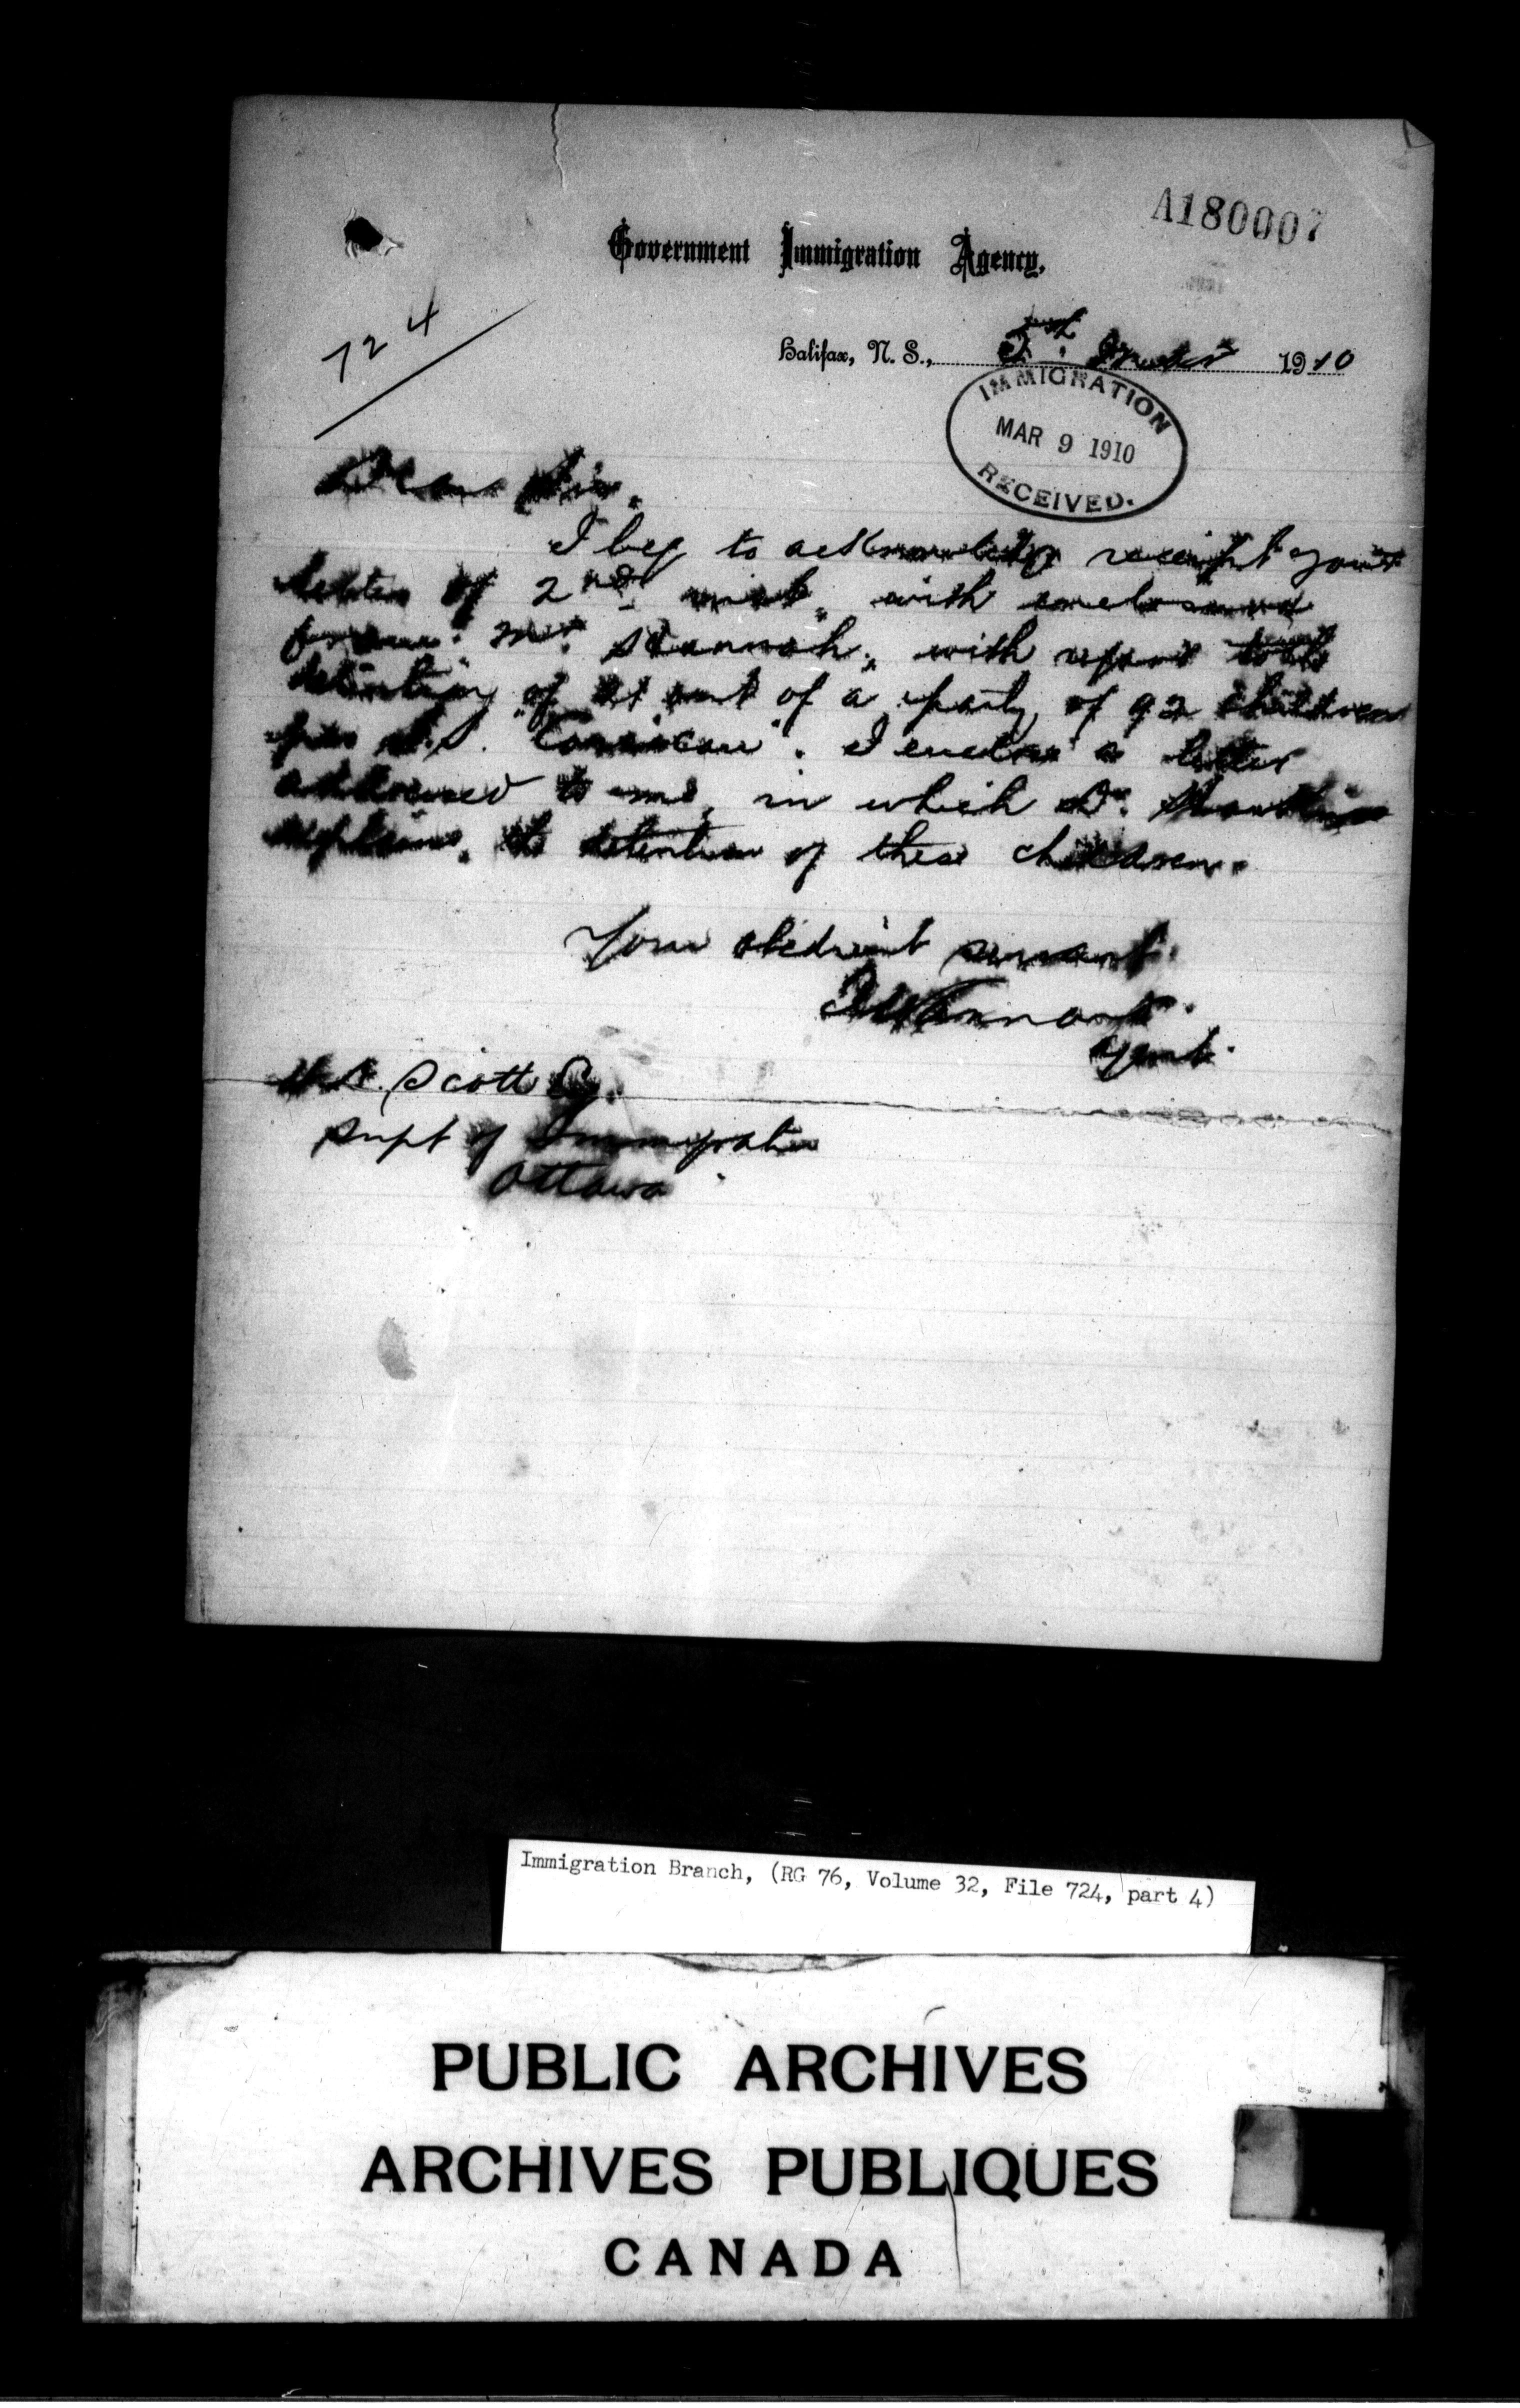 A180007
Government Immigration Agency.
724
Halifax, N. S., 5th March 1910
IMMIGRATION
MAR 9 1910
RECEIVED.
Dear Sir,
I beg to acknowledge receipt your
letter of 2nd inst, with enclosure
from Mr. , with regard to the
detention of part of a party of 92 children
S.S. "Corsican". I enclose a letter
addressed to me, in which Dr.
explains, the detention of these children.
Your obedient servant
Agent.
Scott Esq.
Supt of Immigration
Ottawa
Immigration Branch, (RG 76, Volume 32, File 724, part 4)
PUBLIC ARCHIVES
ARCHIVES PUBLIQUES
CANADA